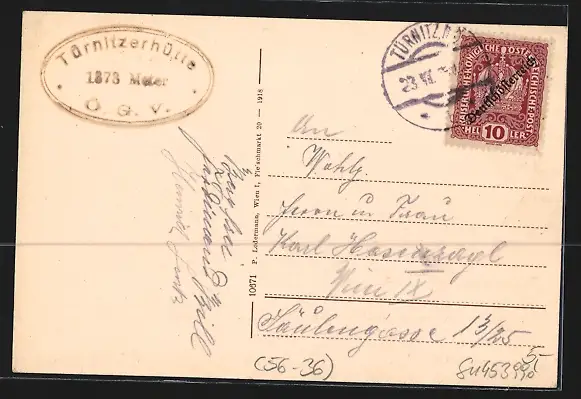 Türnitzerhütte
1373 Meter
Ö. G. V.
TÜRNITZ, N.Ö.
23 VII
KAISERLICHE KÖNIGLICHE POST
ÖSTERREICHISCHE POST
Deutschösterreich
HEL 10 LER
P. Ledermann, Wien I, Fleischmarkt 20 — 1918
10671
An
Wohlg.
Herrn u Frau
Karl Hasenzagl
Wien IX
Säulengasse 13/25
(56-36)
5-